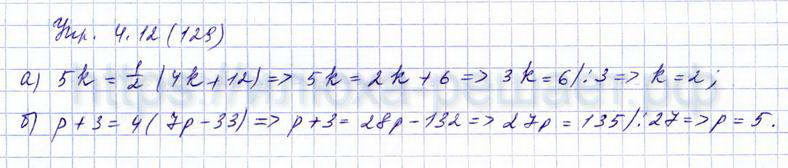 Упр. 4.12 (129)
а) 5k = 1/2 (4k+12) => 5k = 2k + 6 => 3k = 6 /:3 => k = 2;
б) p + 3 = 4 (7p - 33) => p + 3 = 28p - 132 => 27p = 135 /:27 => p = 5.